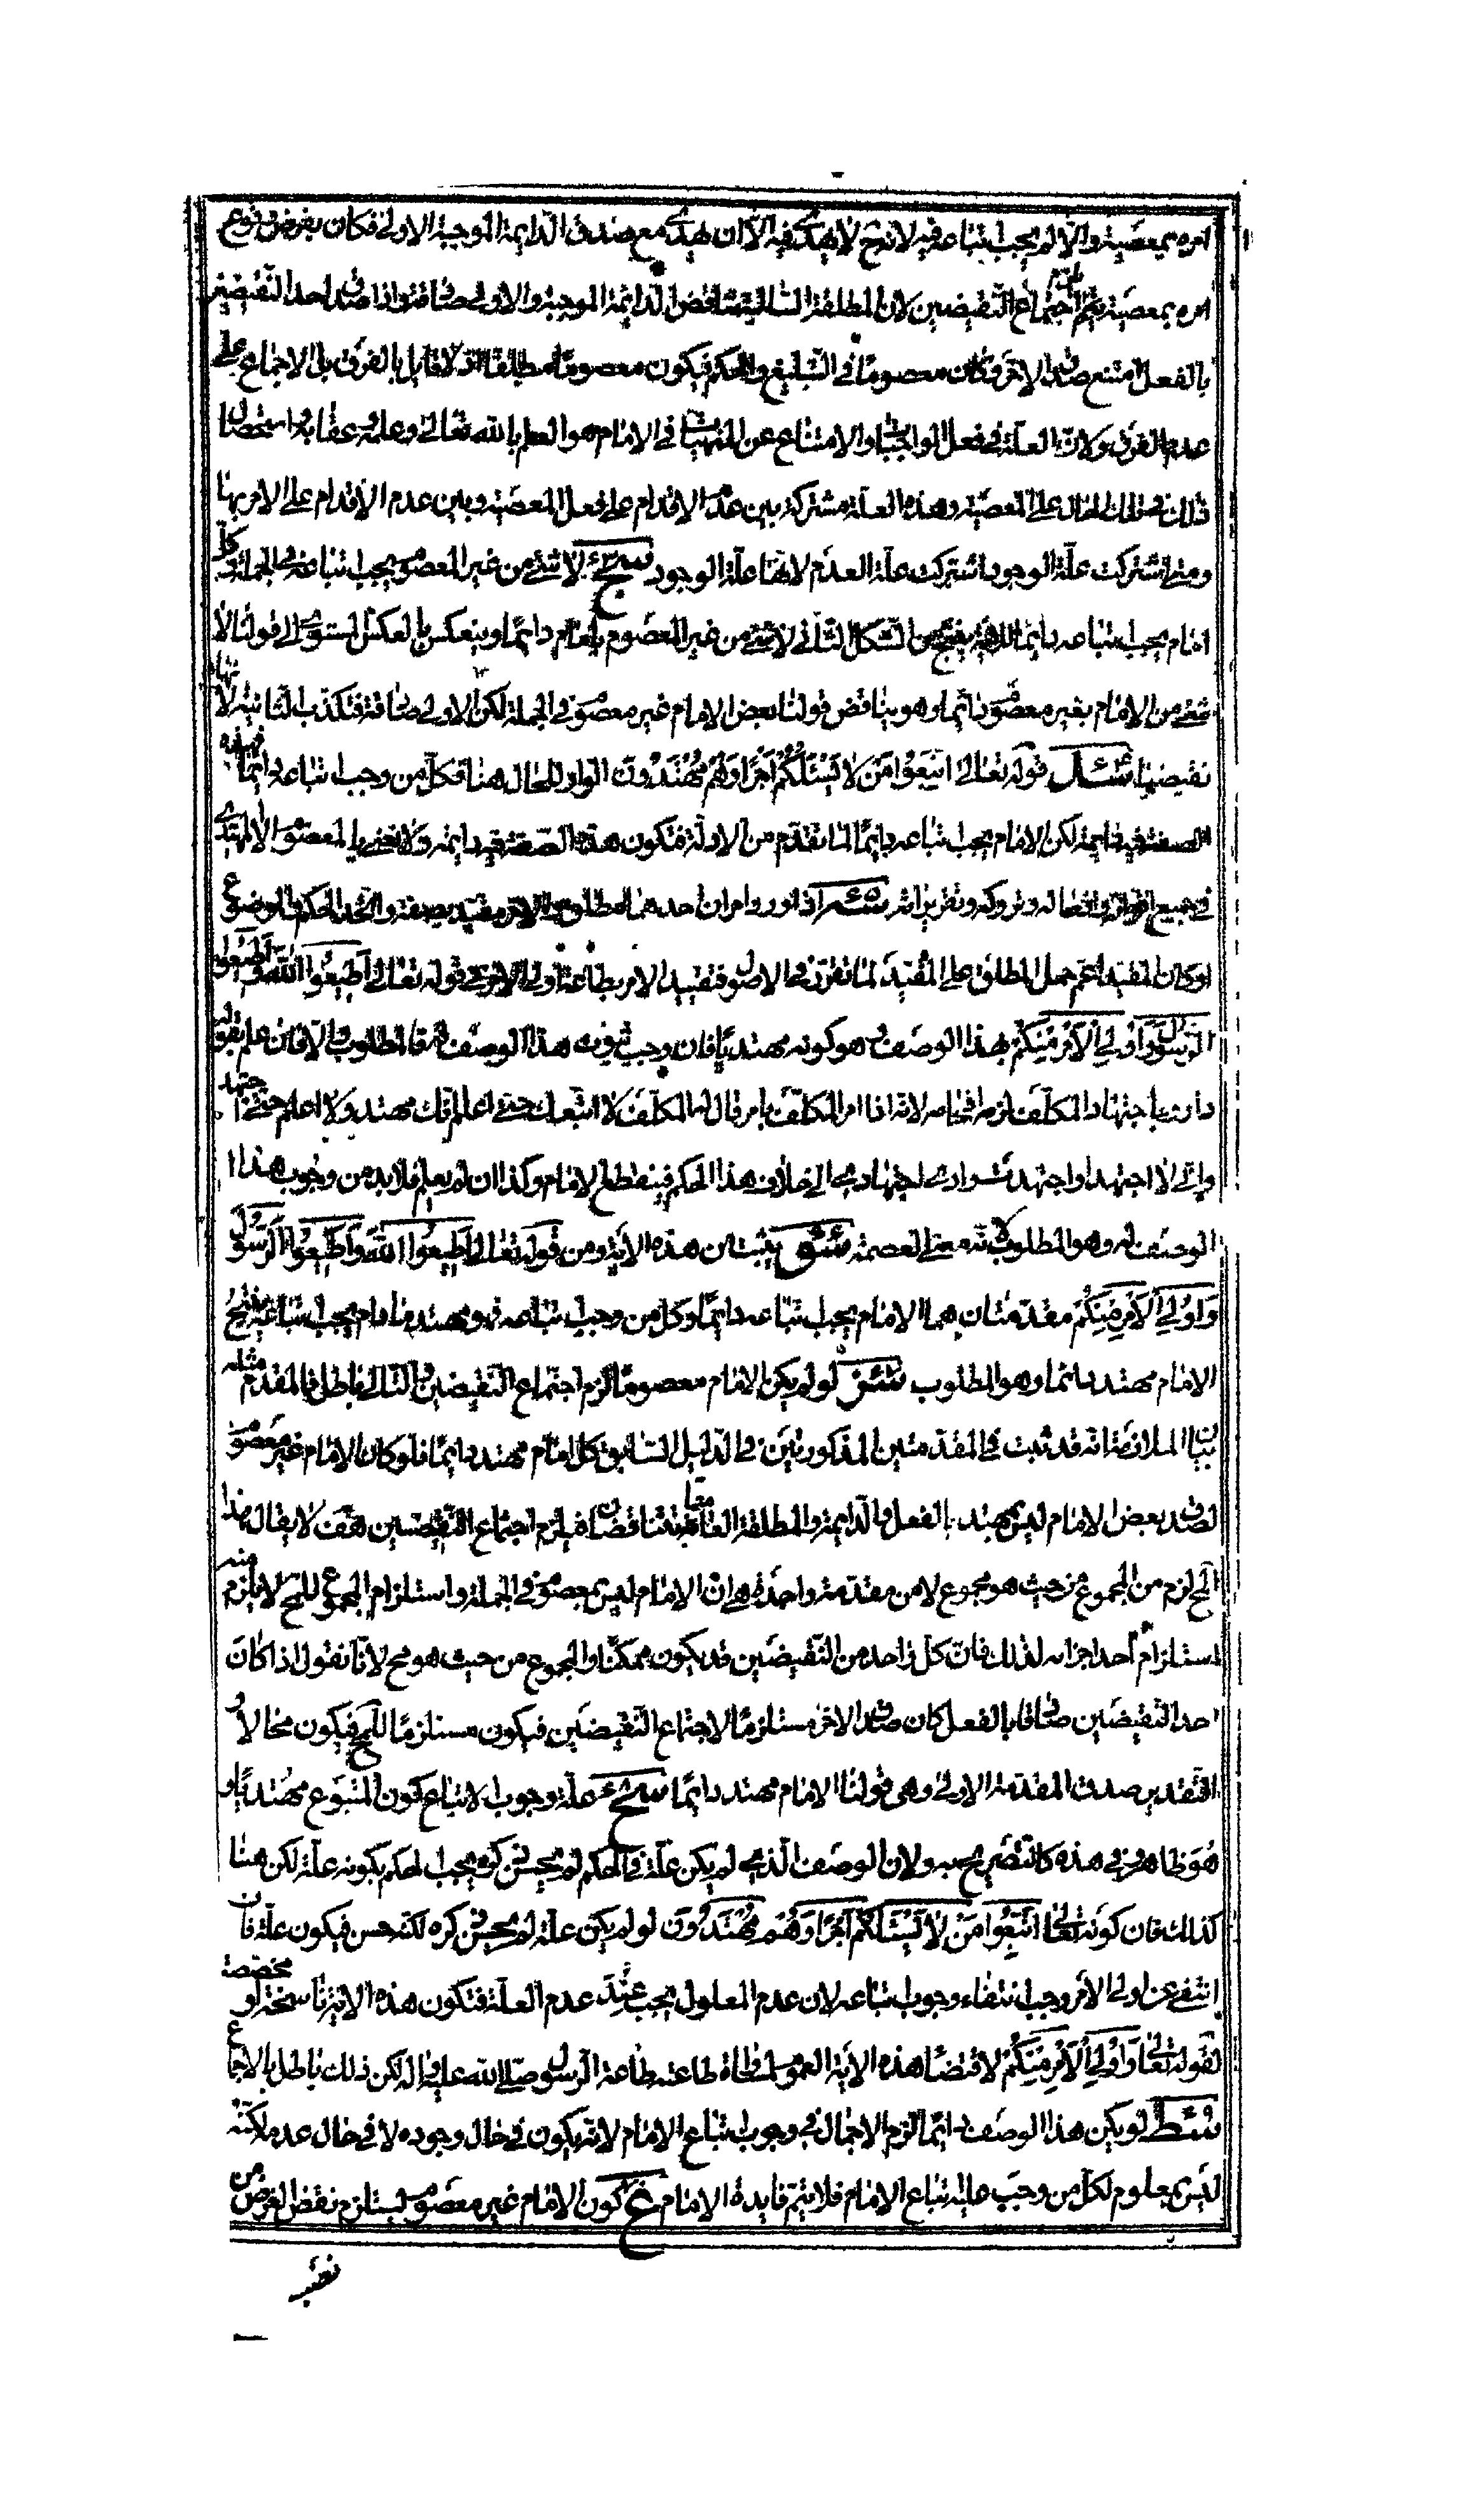 امره بمعصية والا لم يجب اتباعه فيه لانه ح لا يهدى فيه الا ان يهدى مع صدق الدايمة الموجبة الاولى فكان بفرض وقوع
امره بمعصية يلزم اجتماع النقيضين لان المطلقة السالبة تناقض الدايمة الموجبة والاولى صادقة واذا صدق احد النقيضين
بالفعل امتنع صدق الاخر وكان معصوما فى التبليغ والحكم فيكون معصوما مطلقا اذ لا قايل بالفرق بل الاجماع على
عدم الفرق ولان العلة فى فعل الواجبات والامتناع عن المنهيات فى الامام هو العلم بالله تعالى وعلمه بعقابه واستحضار
ذلك فى تلك الحال على المعصية وهذه العلة مشتركة بين عدم الاقدام على فعل المعصية وبين عدم الاقدام على الامر بها
ومتى اشتركت علة الوجود اشتركت علة العدم لانها علة الوجود لا شئ من غير المعصوم يجب اتباعه فى الجملة وكل
امام يجب اتباعه دايما ينتج من الشكل الثانى لا شئ من غير المعصوم بامام دايما وينعكس بالعكس المستوى الى قولنا لا
شئ من الامام بغير معصوم دائما وهو يناقض قولنا بعض الامام غير معصوم فى الجملة لكن الاولى صادقة فتكذب الثانية لانها
نقيضها قوله تعالى اتبعوا من لا يسئلكم اجرا وهم مهتدون الواو للحال هنا فكل من وجب اتباعه دايما فهذه
الصفة فيه دايمة لكن الامام يجب اتباعه دايما لما تقدم من الادلة فتكون هذه الصفة فيه دايمة ولا نعنى بالمعصوم الا المهتدى
فى جميع اقواله وافعاله وتروكه وتقريراته اذا ورد امران احدهما مطلق والاخر مقيد بصفة واتحد الحكم والموضوع
او كان المقيد اعم حمل المطلق على المقيد لما تقرر فى الاصول فتقييد الامر بطاعة اولى الامر فى قوله تعالى اطيعوا الله واطيعوا
الرسول واولى الامر منكم بهذا الوصف هو كونه مهتديا فان وجب ثبوت هذا الوصف له فالمطلوب والا فان علم بقوله
دار وباجتهاد المكلف لزم افحامه لانه اذا امر المكلف بامر قال له المكلف لا اتبعك حتى اعلم انك مهتد ولا اعلم حتى اجتهد
وانى لا اجتهد او اجتهد فادى اجتهادى الى خلاف هذا الحكم فينقطع الامام وكذا ان لم يعلم فلا بد من وجوب هذا
الوصف له وهو المطلوب لانه معنى العصمة يثبت من هذه الاية ومن قوله تعالى اطيعوا الله واطيعوا الرسول
واولى الامر منكم مقدمتان هما الامام يجب اتباعه دايما وكل من وجب اتباعه فهو مهتد ما دام يجب اتباعه ينتج
الامام مهتد دايما وهو المطلوب لو لم يكن الامام معصوما لزم اجتماع النقيضين والتالى باطل فالمقدم مثله
بيان الملازمة انه قد ثبت فى المقدمتين المذكورتين فى الدليل السابق كل امام مهتد دايما فلو كان الامام غير معصوم
لصدق بعض الامام ليس بمهتد بالفعل والدايمة والمطلقة العامة تتناقضان فيلزم اجتماع النقيضين هف لا يقال هذا
المح لزم من المجموع من حيث هو مجموع لا من مقدمة واحدة هى ان الامام ليس بمعصوم فى الجملة واستلزام المجموع للمح لا يلزم منه
استلزام احد اجزائه لذلك فان كل واحد من النقيضين قد يكون ممكنا والمجموع من حيث هو مح لانا نقول اذا كان
احد النقيضين صادقا بالفعل كان صدق الاخر مستلزما لاجتماع النقيضين فيكون مستلزما للمح فيكون محالا و
التقدير صدق المقدمة الاولى وهى قولنا الامام مهتد دايما علة وجوب الاتباع كون المتبوع مهتديا و
هو ظاهر فى هذه كالتصريح به ولان الوصف الذى لو لم يكن علة فى الحكم لم يحسن ذكره يجب الحكم بكونه علة لكن هنا
كذلك فان قوله تعالى اتبعوا من لا يسئلكم اجرا وهم مهتدون لو لم يكن علة لم يحسن ذكره لكنه حسن فيكون علة فان
انتفى عن اولى الامر وجب انتفاء وجوب اتباعه لان عدم المعلول يجب عند عدم العلة فتكون هذه الاية ناسخة او مخصصة
لقوله تعالى واولى الامر منكم لاقتضاء هذه الاية العموم طاعته طاعة الرسول صلى الله عليه واله لكن ذلك باطل بالاجماع
لو لم يكن هذا الوصف دايما لزم الاجمال فى وجوب اتباع الامام لانه يكون فى حال وجوده لا فى حال عدمه لكنه
ليس بمعلوم لكل من وجب عليه اتباع الامام فلا يتم فايدة الامام كون الامام غير معصوم يستلزم نقض الغرض من
نصبه